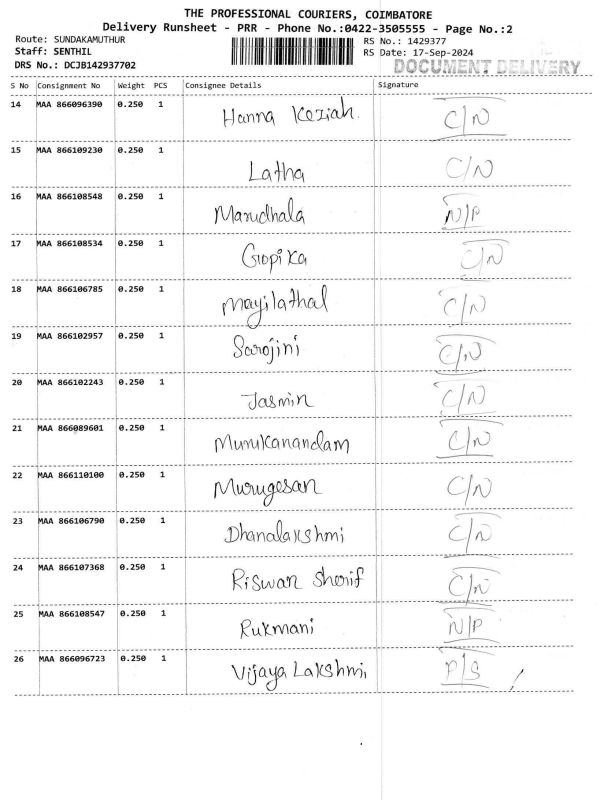 THE PROFESSIONAL COURIERS, COIMBATORE
Delivery Runsheet - PRR - Phone No.:0422-3505555 - Page No.:2
Route: SUNDAKAMUTHUR RS No.: 1429377
Staff: SENTHIL RS Date: 17-Sep-2024
DRS No.: DCJB142937702 DOCUMENT DELIVERY
S No Consignment No Weight PCS Consignee Details Signature
14 MAA 866096390 0.250 1 Hanna Keziah C/N
15 MAA 866109230 0.250 1 Latha C/N
16 MAA 866108548 0.250 1 Marudhala N/P
17 MAA 866108534 0.250 1 Gopika C/N
18 MAA 866106785 0.250 1 Mayilathal C/N
19 MAA 866102957 0.250 1 Sarojini C/N
20 MAA 866102243 0.250 1 Jasmin C/N
21 MAA 866089601 0.250 1 Murukanandam C/N
22 MAA 866110100 0.250 1 Murugesan C/N
23 MAA 866106790 0.250 1 Dhanalakshmi C/N
24 MAA 866107368 0.250 1 Riswan Sherif C/N
25 MAA 866108547 0.250 1 Rukmani N/P
26 MAA 866096723 0.250 1 Vijaya Lakshmi P/S